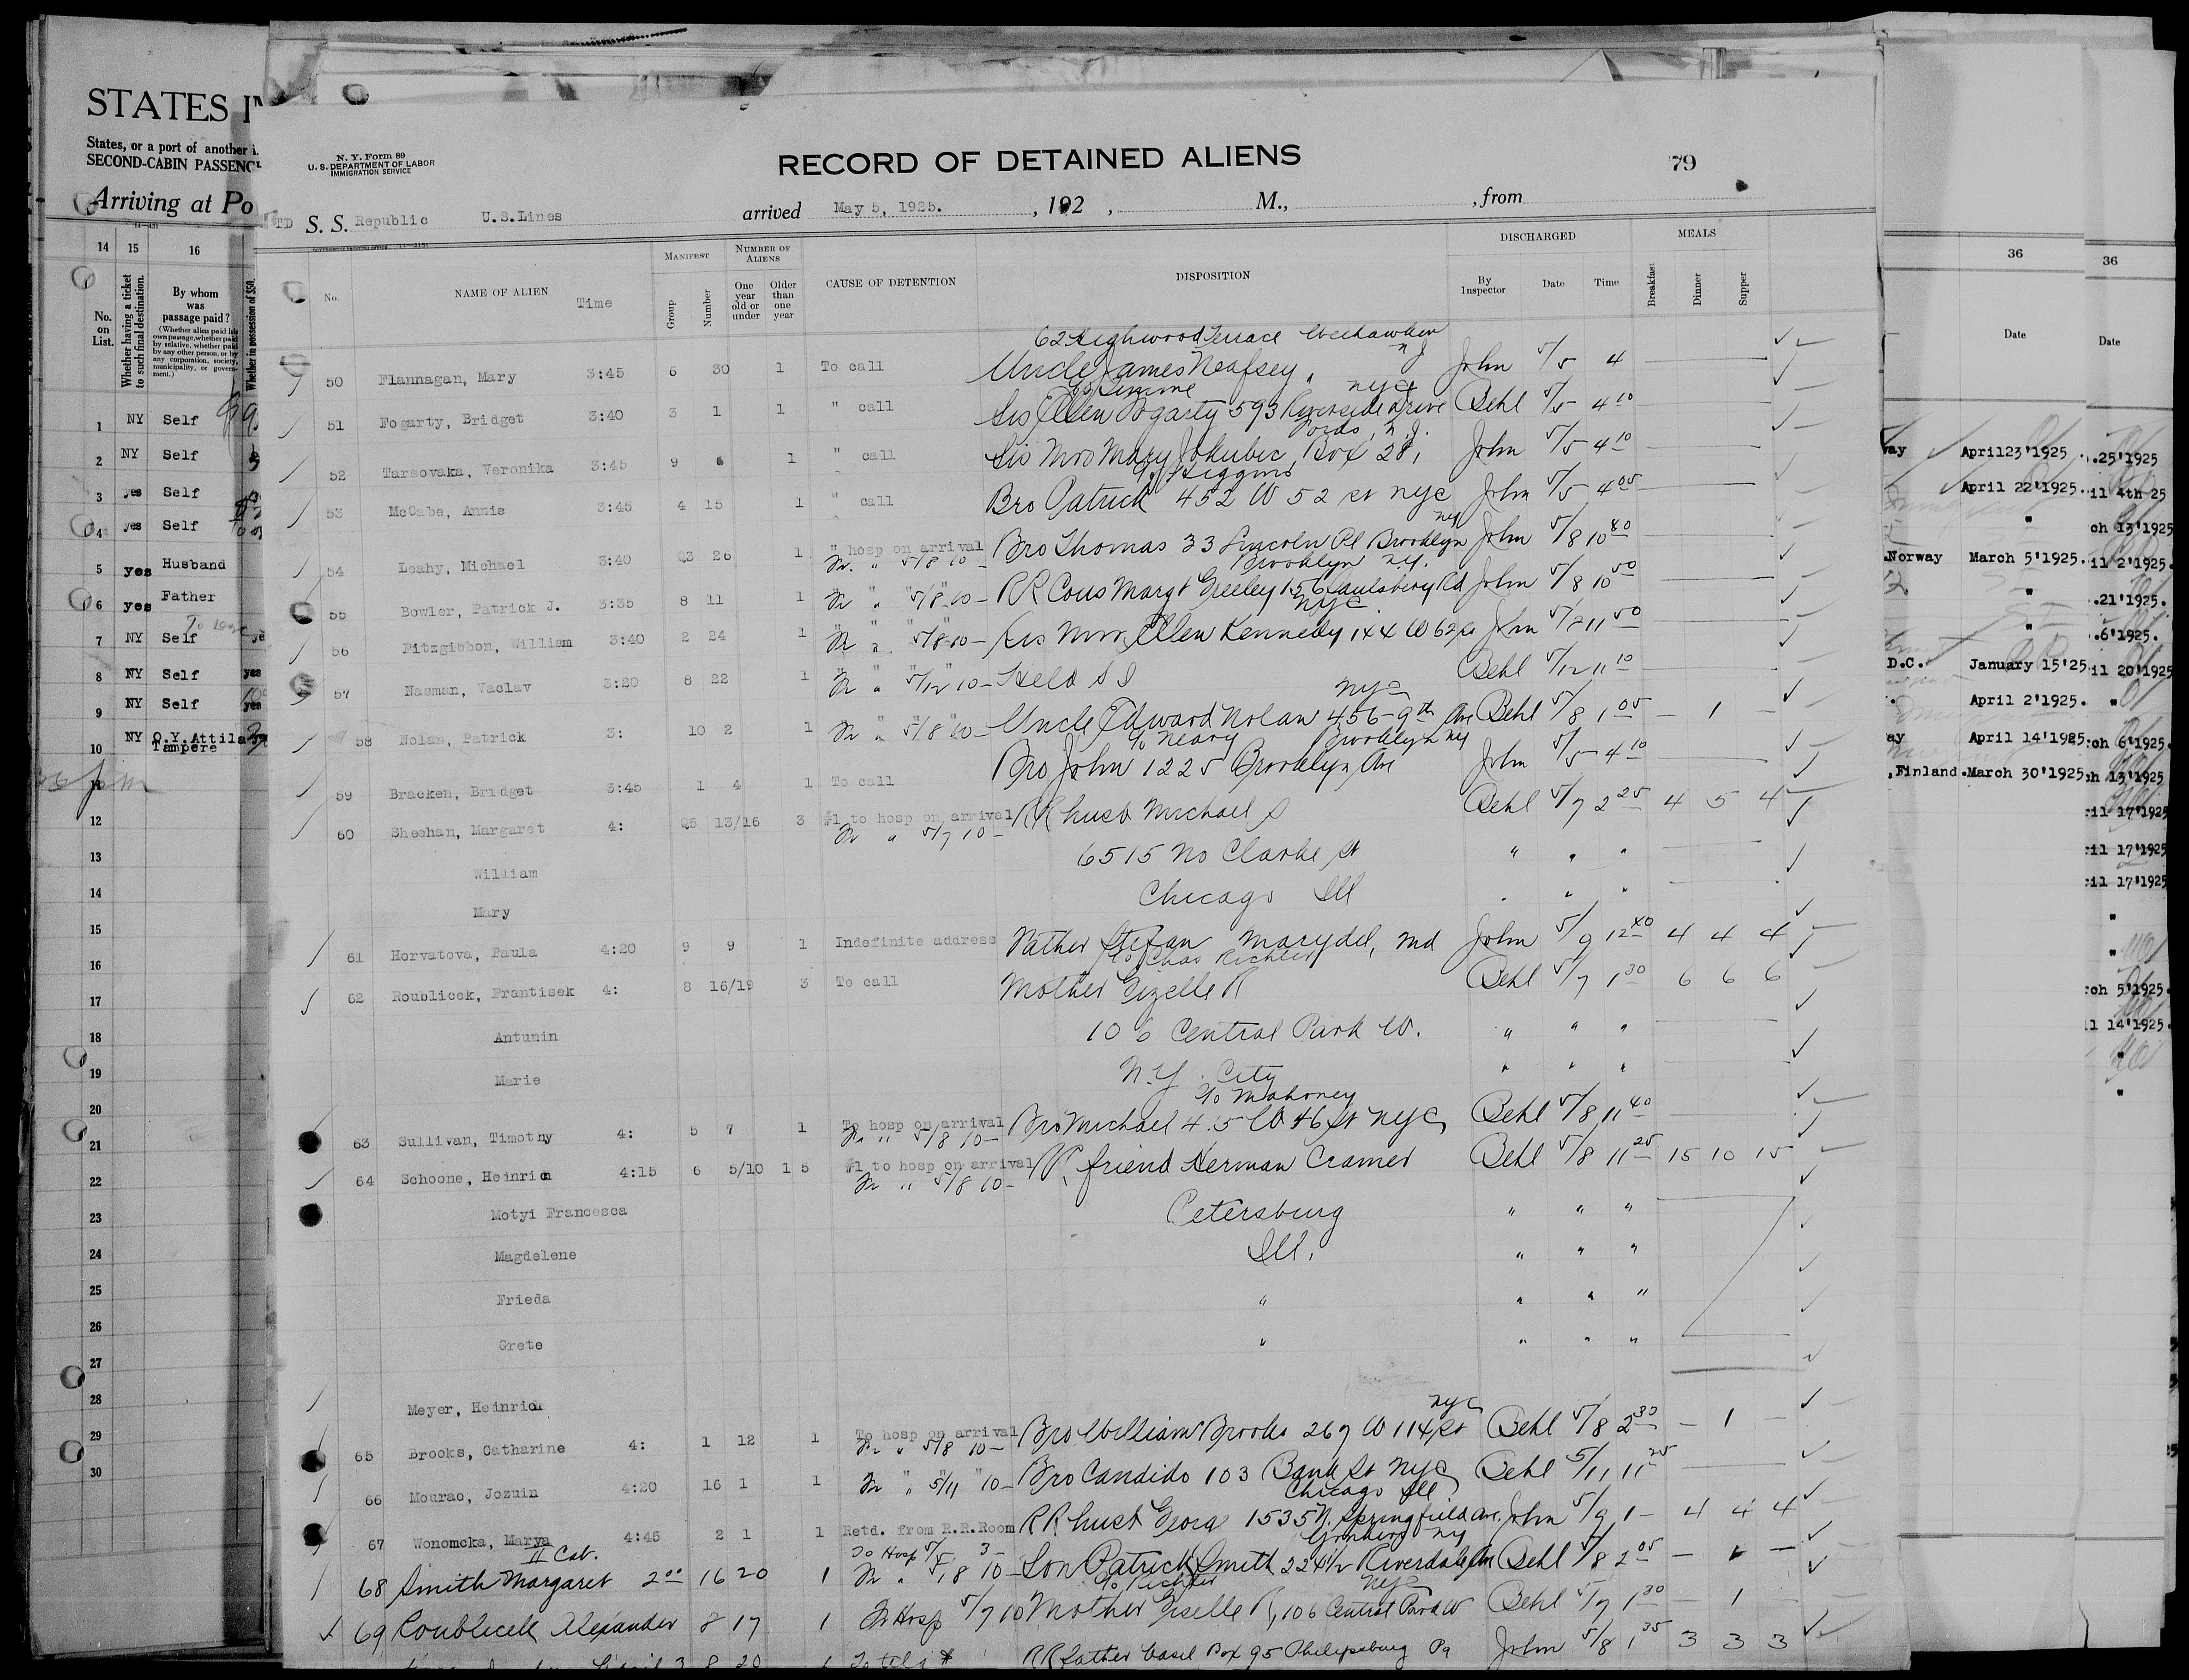 STATES IN
States, or a port of another i
SECOND-CABIN PASSENG
Arriving at Po
14 15 16
No. on List.
Whether having a ticket to such final destination.
By whom was passage paid?
(Whether alien paid his own passage, whether paid by relative, whether paid by any other person, or by any corporation, society, municipality, or government.)
Whether in possession of $50,
1 NY Self
2 NY Self
3 yes Self
4 yes Self
5 yes Husband
6 yes Father
7 NY Self
8 NY Self yes
9 NY Self yes
10 NY O.Y.Attila
Tampere
11
12
13
14
15
16
17
18
19
20
21
22
23
24
25
26
27
28
29
30
N. Y. Form 89
U. S. DEPARTMENT OF LABOR
IMMIGRATION SERVICE
RECORD OF DETAINED ALIENS
79
TD S. S. Republic U.S.Lines arrived May 5, 1925. , 192 , M., , from
No. NAME OF ALIEN Time
MANIFEST Group Number
NUMBER OF ALIENS One year old or under Older than one year
CAUSE OF DETENTION
DISPOSITION
DISCHARGED By Inspector Date Time
MEALS Breakfast Dinner Supper
62 Highwood Terrace Weehawken
50 Flannagan, Mary 3:45 6 30 1 To call Uncle James Neafsey, NJ John 5/5 4
nyc
51 Fogarty, Bridget 3:40 3 1 1 " call Sis Ellen Fogarty 593 Riverside Drive Behl 5/5 4 10
Fords, N.J.
52 Tarsovaka, Veronika 3:45 9 6 1 " call Sis Mrs Mary Jokubic Box 28, John 5/5 4 10
c/o Higgins
53 McCabe, Annie 3:45 4 15 1 " call Bro Patrick 452 W 52 st nyc John 5/5 4 05
54 Leahy, Michael 3:40 Q3 26 1 " hosp on arrival Bro Thomas 33 Lincoln Pl Brooklyn ny John 5/8 10 40
Fr. " 5/8 10-
Brooklyn ny.
55 Bowler, Patrick J. 3:35 8 11 1 Fr " 5/8 10- RR Cous Margt Greeley 156 Saulsbery Rd John 5/8 10 50
nyc
56 Fitzgibbon, William 3:40 2 24 1 Fr " 5/8 10- Sis Mrs Ellen Kennedy 144 W 62 st John 5/8 11 50
57 Nasman, Vaclav 3:20 8 22 1 Fr " 5/12 10- Held S I Behl 5/12 11 10
nyc
58 Nolan, Patrick 3: 10 2 1 Fr " 5/8 10- Uncle Edward Nolan 456-9th Ave Behl 5/8 1 05 - 1 -
c/o Neary Brooklyn ny
59 Bracken, Bridget 3:45 1 4 1 To call Bro John 1225 Brooklyn Ave John 5/5 4 10
60 Sheehan, Margaret 4: Q5 13/16 3 #1 to hosp on arrival RR husb Michael S Behl 5/7 2 25 4 5 4
Fr " 5/7 10-
William 6515 No Clarke st " " "
Mary Chicago Ill " " "
61 Horvatova, Paula 4:20 9 9 1 Indefinite address Father Stefan Marydel, Md John 5/9 12 40 4 4 4
c/o Chas Richter
62 Roublicek, Frantisek 4: 8 16/19 3 To call Mother Gizelle R Behl 5/7 1 30 6 6 6
Antunin 106 Central Park W. " " "
Marie N.Y. City " " "
c/o Mahoney
63 Sullivan, Timothy 4: 5 7 1 To hosp on arrival Bro Michael 4.5 W 46 st NYC Behl 5/8 11 40
Fr " 5/8 10-
64 Schoone, Heinrich 4:15 6 5/10 1 5 #1 to hosp on arrival RR friend Herman Cramer Behl 5/8 11 25 15 10 15
Fr " 5/8 10-
Motyi Francesca Petersburg " " "
Magdelene Ill. " " "
Frieda " " " "
Grete " " " "
Meyer, Heinrich
nyc
65 Brooks, Catharine 4: 1 12 1 To hosp on arrival Bro William Brooks 267 W 114 st Behl 5/8 2 30 - 1 -
Fr " 5/8 10-
66 Mourao, Jozuin 4:20 16 1 1 Fr " 5/11 10- Bro Candido 103 Bank st NYC Behl 5/11 11 25
Chicago Ill
67 Wonomcka, Marya 4:45 2 1 1 Retd. from R.R.Room RR husb Georg 1535 N. Springfield ave. John 5/9 1- 4 4 4
II Cab. To Hosp 5/5 3 Yonkers ny
68 Smith Margaret 2 00 16 20 1 Fr " 5/8 10 Son Patrick Smith 224 1/2 Riverdale Ave Behl 5/8 2 05 - 1 -
c/o Richter nyc
69 Roublicek Alexander 8 17 1 Fr Hosp 5/7 10 Mother Giselle R, 106 Central Park W Behl 5/7 1 30 - 1 -
8 20 1 To telg $ RR father Vasil Box 95 Philipsburg Pa John 5/8 1 35 3 3 3
36
Date
way April23'1925
April 22'1925.
"
.Norway March 5'1925.
"
"
D.C. January 15'25
April 2'1925.
ay April 14'1925
,Finland.March 30'1925
36
Date
.25'1925
il 4th 25
ch 13'1925
il 2'1925.
.21'1925.
.6'1925.
il 20'1925
"
ch 6'1925.
h 13'1925
ril 17'1925
ril 17'1925
ril 17'1925
"
"
rch 5'1925.
l 14'1925.
"
"